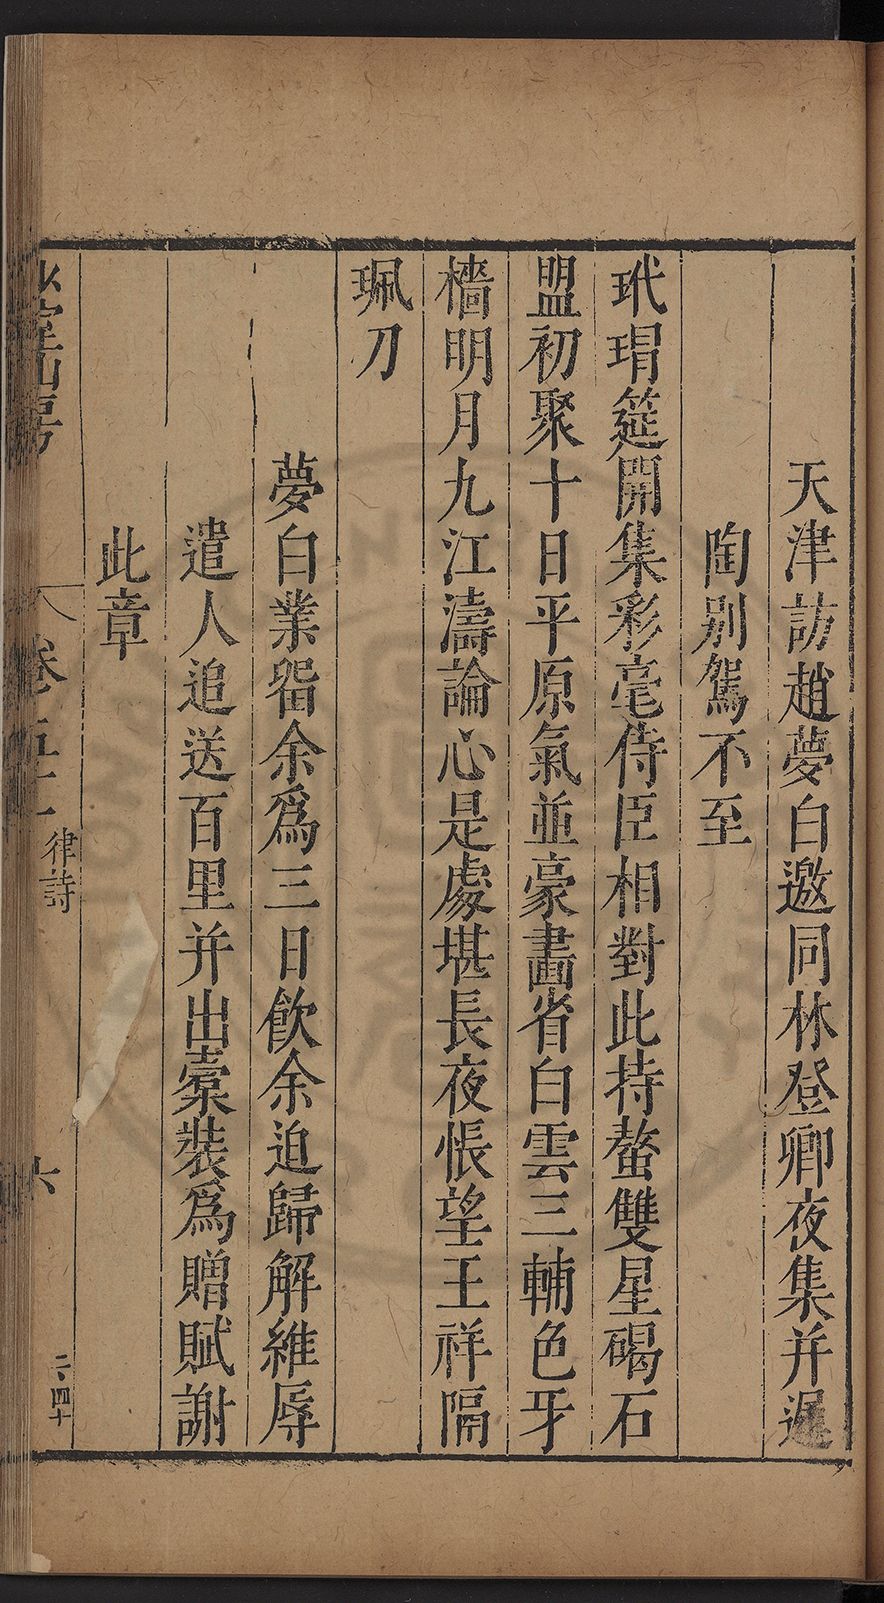 天津訪趙夢白邀同林登卿夜集并遲
陶別駕不至
玳瑁筵開集彩毫侍臣相對此持螯雙星碣石
盟初聚十日平原氣並豪畫省白雲三輔色牙
檣明月九江濤論心是處堪長夜悵望王祥隔
珮刀
夢白業畱余爲三日飲余迫歸解維辱
遣人追送百里并出橐裝爲贈賦謝
此章
山房
卷五十
律詩
六
二、四十